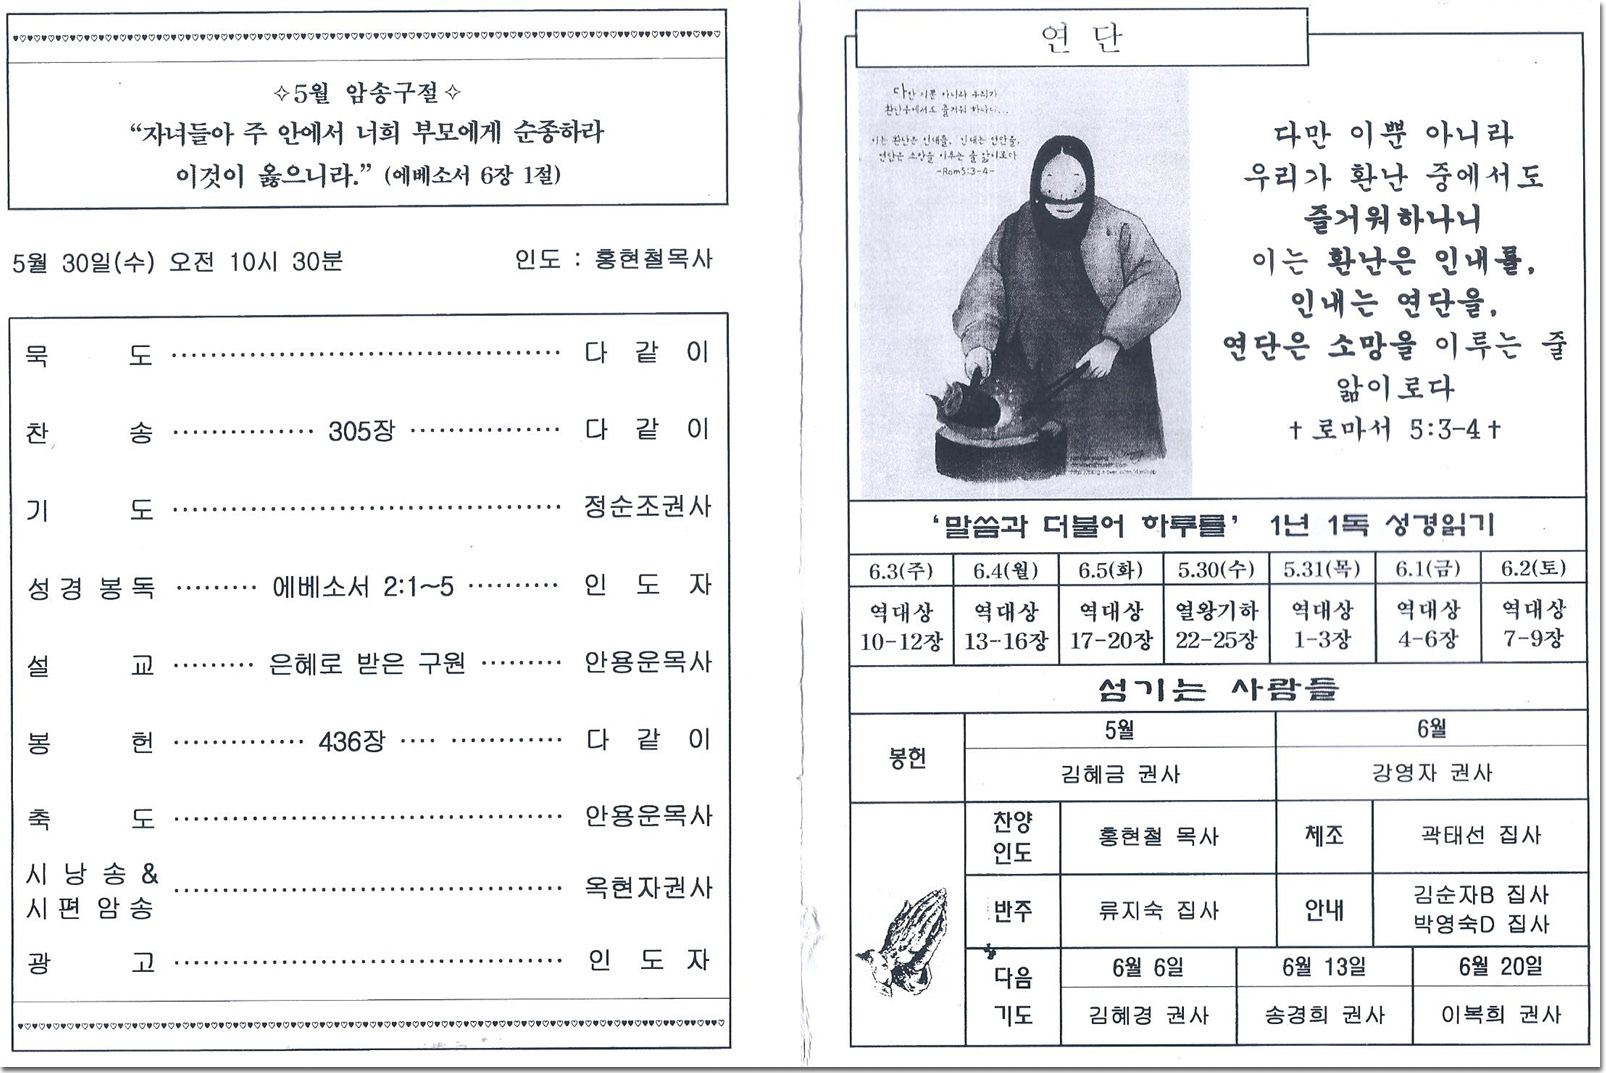 ✧5월 암송구절✧
“자녀들아 주 안에서 너희 부모에게 순종하라
이것이 옳으니라.” (에베소서 6장 1절)
5월 30일(수) 오전 10시 30분 인도 : 홍현철목사
묵 도 다 같 이
찬 송 305장 다 같 이
기 도 정순조권사
성 경 봉 독 에베소서 2:1~5 인 도 자
설 교 은혜로 받은 구원 안용운목사
봉 헌 436장 다 같 이
축 도 안용운목사
시 낭 송 &
시 편 암 송 옥현자권사
광 고 인 도 자
연 단
다만 이뿐 아니라 우리가
환난중에서도 즐거워 하나니...
이는 환난은 인내를, 인내는 연단을,
연단은 소망을 이루는 줄 앎이로다
-Rom5:3-4-
다만 이뿐 아니라
우리가 환난 중에서도
즐거워하나니
이는 환난은 인내를,
인내는 연단을,
연단은 소망을 이루는 줄
앎이로다
✝로마서 5:3-4✝
‘말씀과 더불어 하루를’ 1년 1독 성경읽기
6.3(주) 6.4(월) 6.5(화) 5.30(수) 5.31(목) 6.1(금) 6.2(토)
역대상 역대상 역대상 열왕기하 역대상 역대상 역대상
10-12장 13-16장 17-20장 22-25장 1-3장 4-6장 7-9장
섬기는 사람들
봉헌 5월 6월
김혜금 권사 강영자 권사
찬양
인도 홍현철 목사 체조 곽태선 집사
반주 류지숙 집사 안내 김순자B 집사
박영숙D 집사
다음
기도 6월 6일 6월 13일 6월 20일
김혜경 권사 송경희 권사 이복희 권사